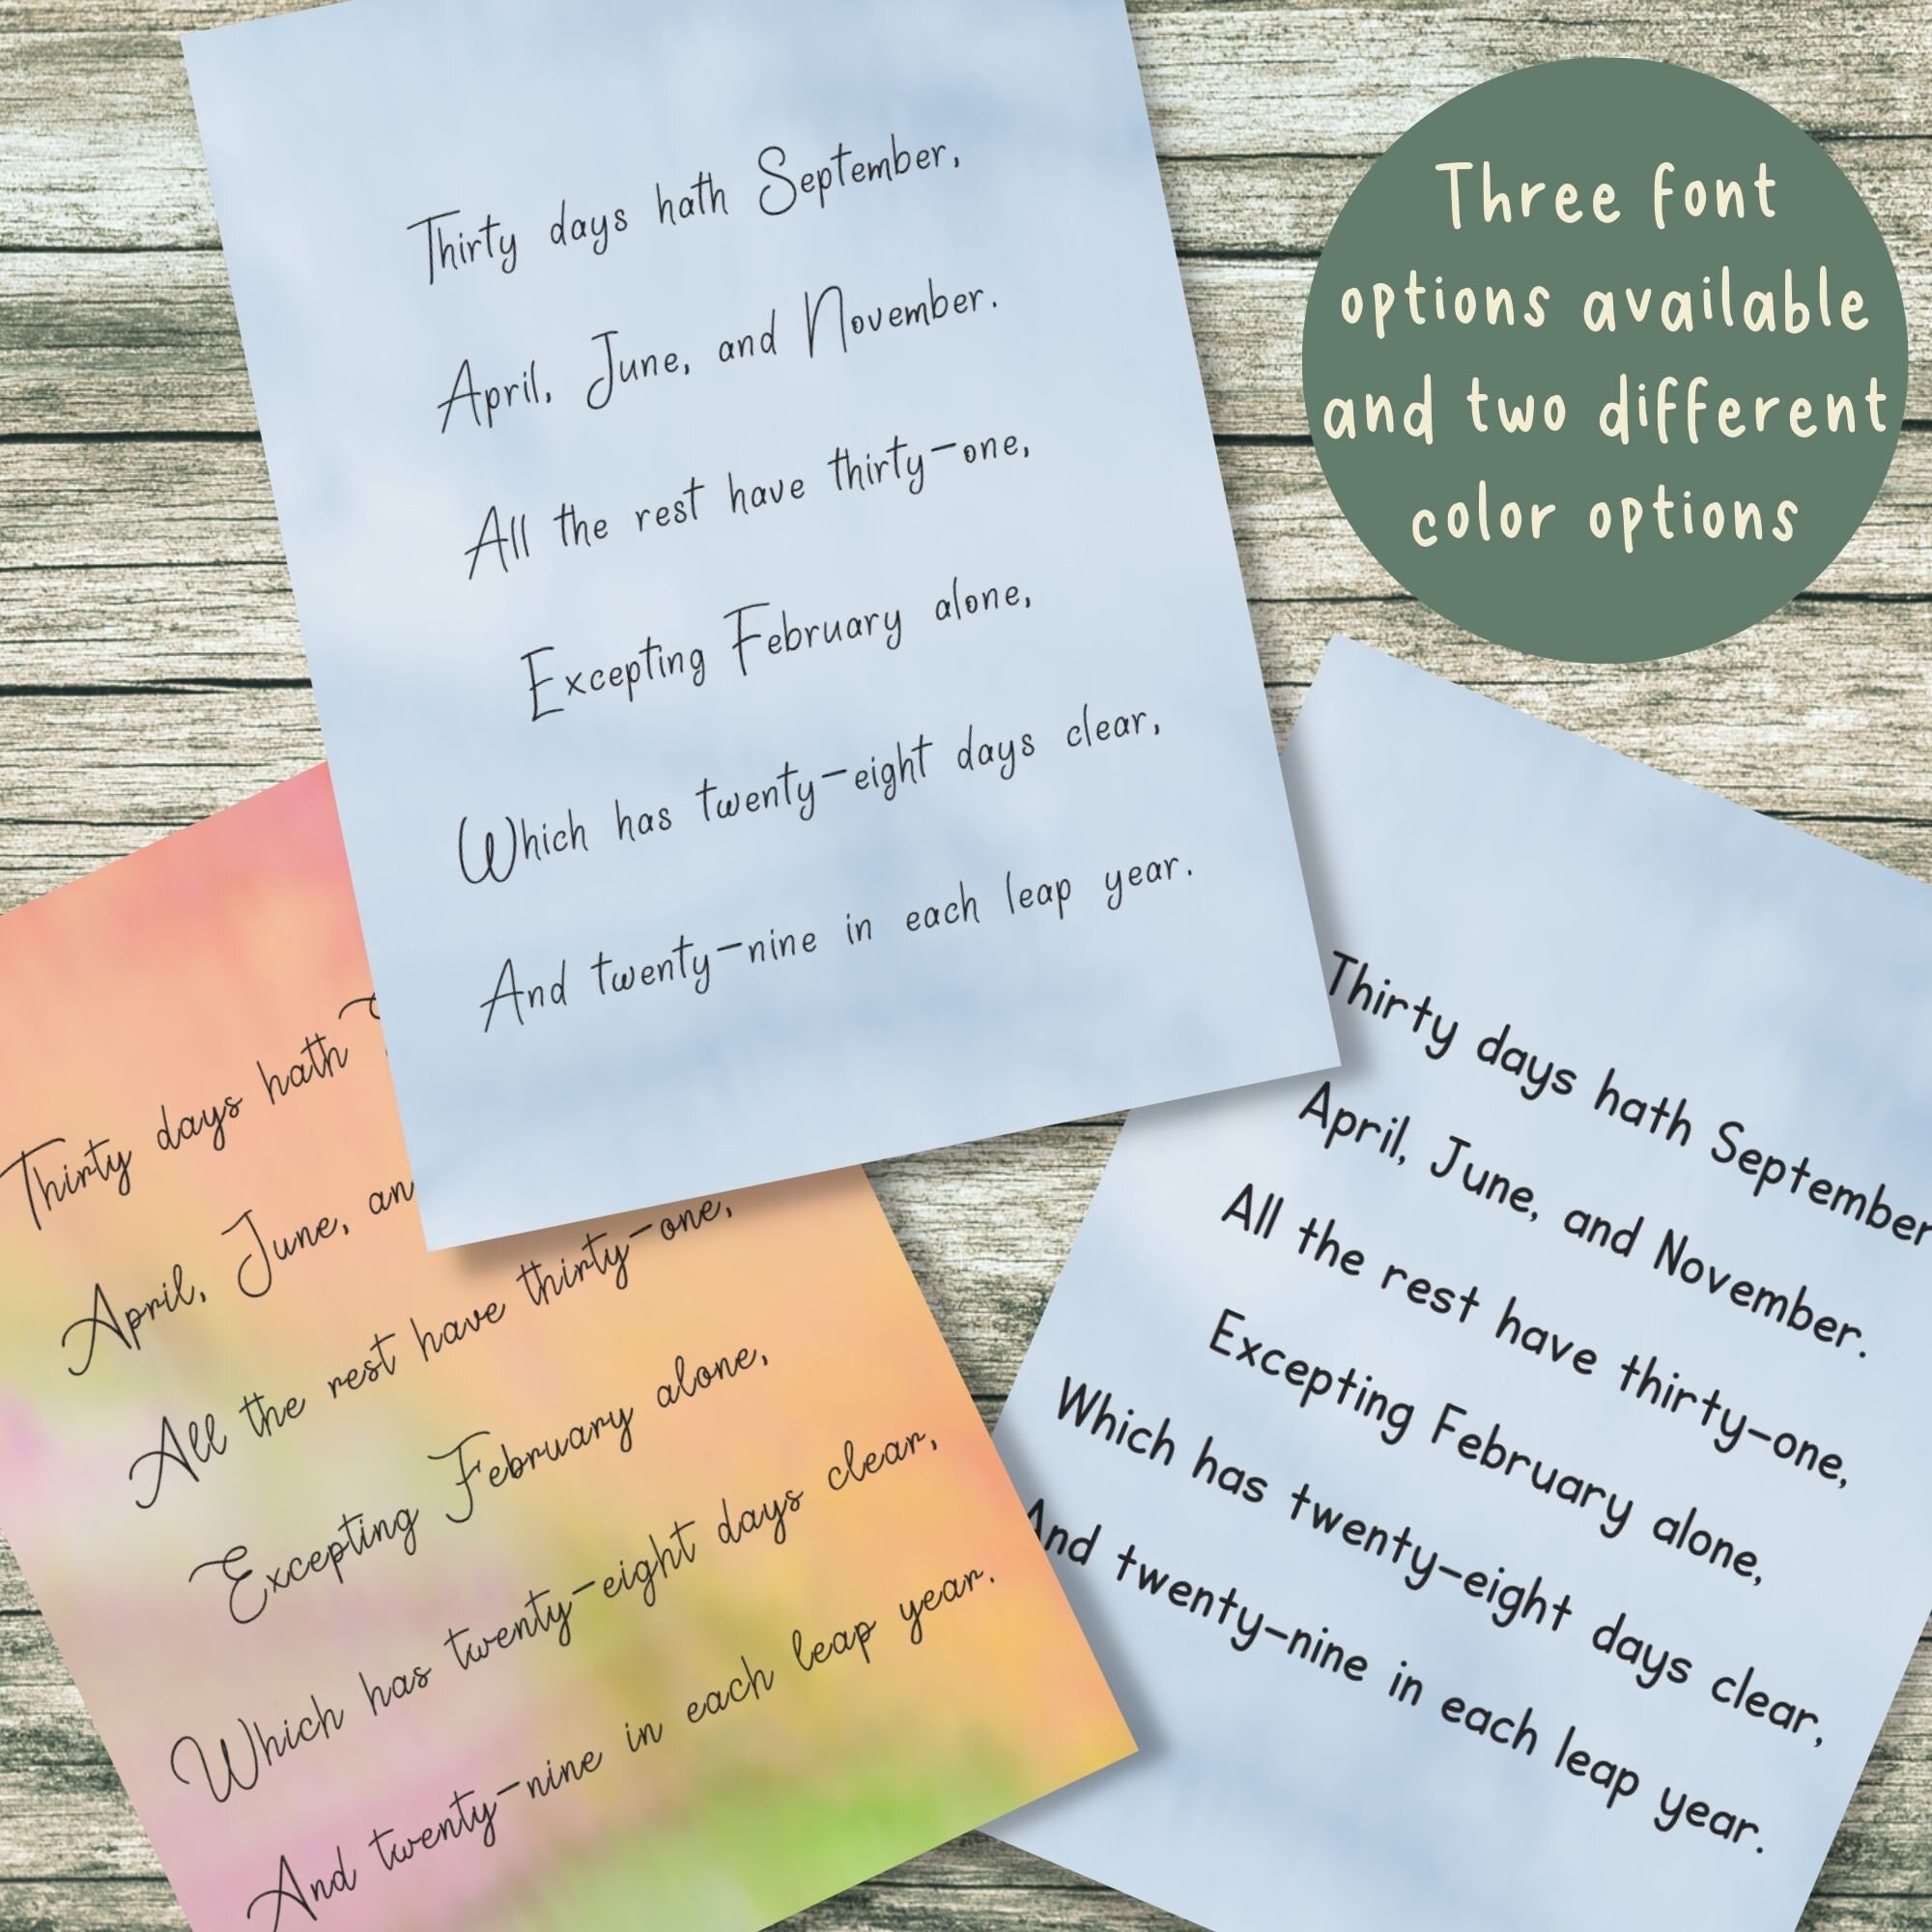 Thirty days hath September,
April, June, and November.
All the rest have thirty-one,
Excepting February alone,
Which has twenty-eight days clear,
And twenty-nine in each leap year.
Three font
options available
and two different
color options
Thirty days hath
April, June, an
All the rest have thirty-one,
Excepting February alone,
Which has twenty-eight days clear,
And twenty-nine in each leap year.
Thirty days hath September
April, June, and November.
All the rest have thirty-one,
Excepting February alone,
Which has twenty-eight days clear,
And twenty-nine in each leap year.